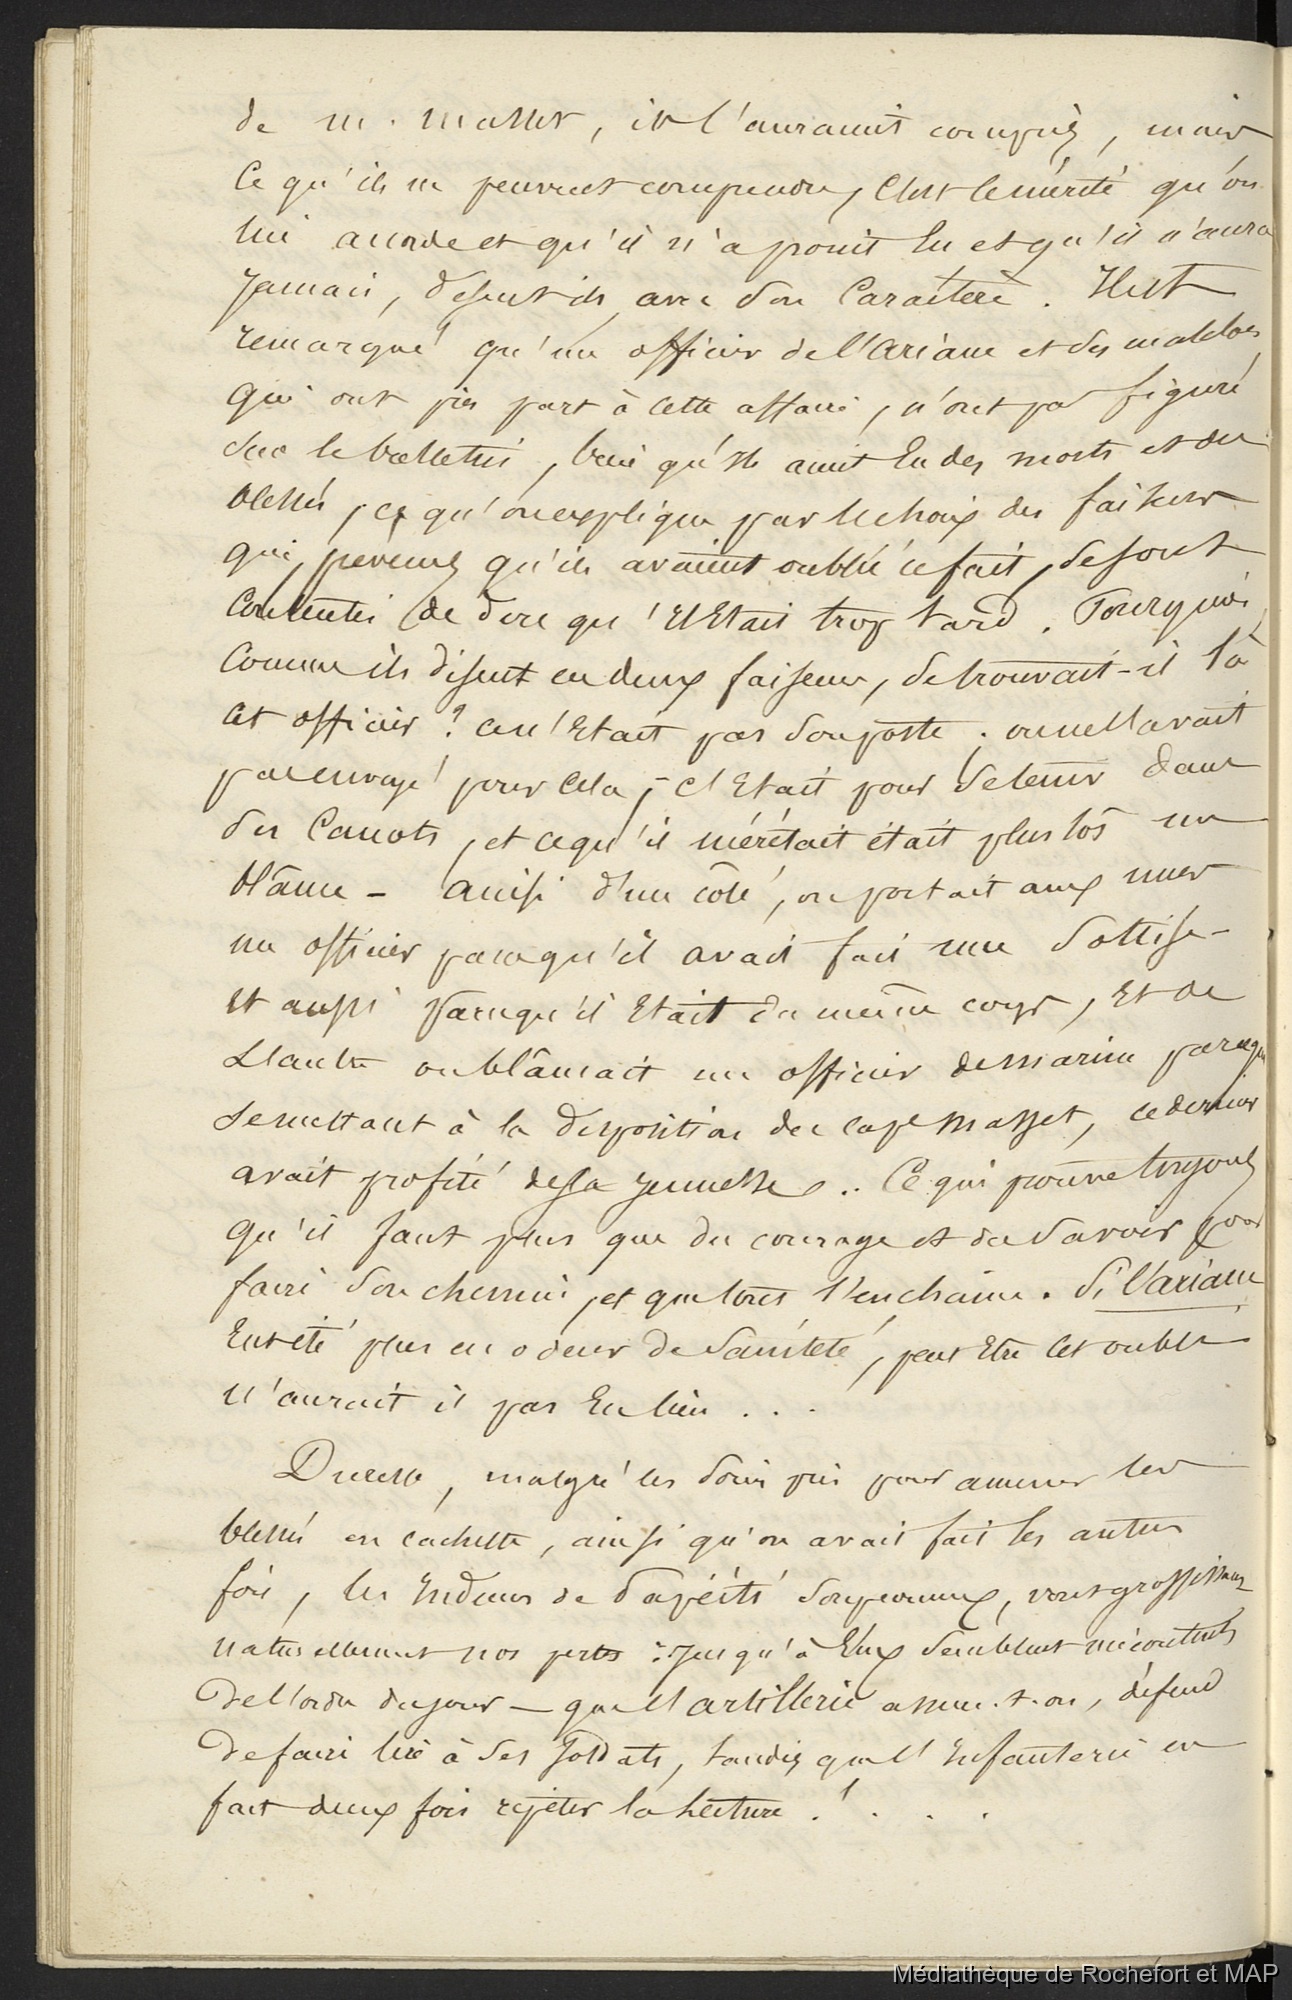 de m. Masset, ils l'auraient compris, mais
ce qu'ils ne peuvent comprendre, c'est le mérite qu'on
lui accorde et qu'il n'a point eu et qu'il n'aura
jamais, disent-ils avec son caractère. Il est
remarqué qu'un officier de l'ariane et des matelots
qui ont pris part à cette affaire, n'ont pas figuré
sur le bulletin, bien qu'ils aient eu des morts et des
blessés, ce qu'on explique par le choix des faiseurs
qui, prévenus qu'ils avaient oublié ce fait, se sont
contentés de dire qu'il était trop tard. Pourquoi,
comme ils disent ces deux faiseurs, se trouvait-il là
cet officier? ce n'était pas son poste; on ne l'avait
pas envoyé pour cela; - c'était pour se tenir dans
des canots, et ce qu'il méritait était plustôt un
blâme - ainsi d'un côté, on portait aux nues
un officier parcequ'il avait fait une sottise -
et aussi parcequ'il était du même corps, et de
l'autre on blâmait un officier de marine parceque
se mettant à la disposition du cape Masset, ce dernier
avait profité de sa jeunesse .. Ce qui prouve toujours
qu'il faut plus que du courage et du savoir pour
faire son chemin, et que tout s'enchaine. Si l'ariane
eut été plus en odeur de sainteté, peut être cet oubli
n'aurait il pas eu lieu . . .
Du reste, malgré les soins pris pour amener les
blessés en cachette, ainsi qu'on avait fait les autres
fois, les Indiens de Papéiti soupçonneux, vont grossissant
naturellement nos pertes : jusqu'à eux semblent mécontents
de l'ordre du jour - que l'artillerie assure-t-on, défend
de faire lire à ses soldats, tandis que l'Infanterie en
fait deux fois répéter la lecture .! . . .
Médiathèque de Rochefort et MAP